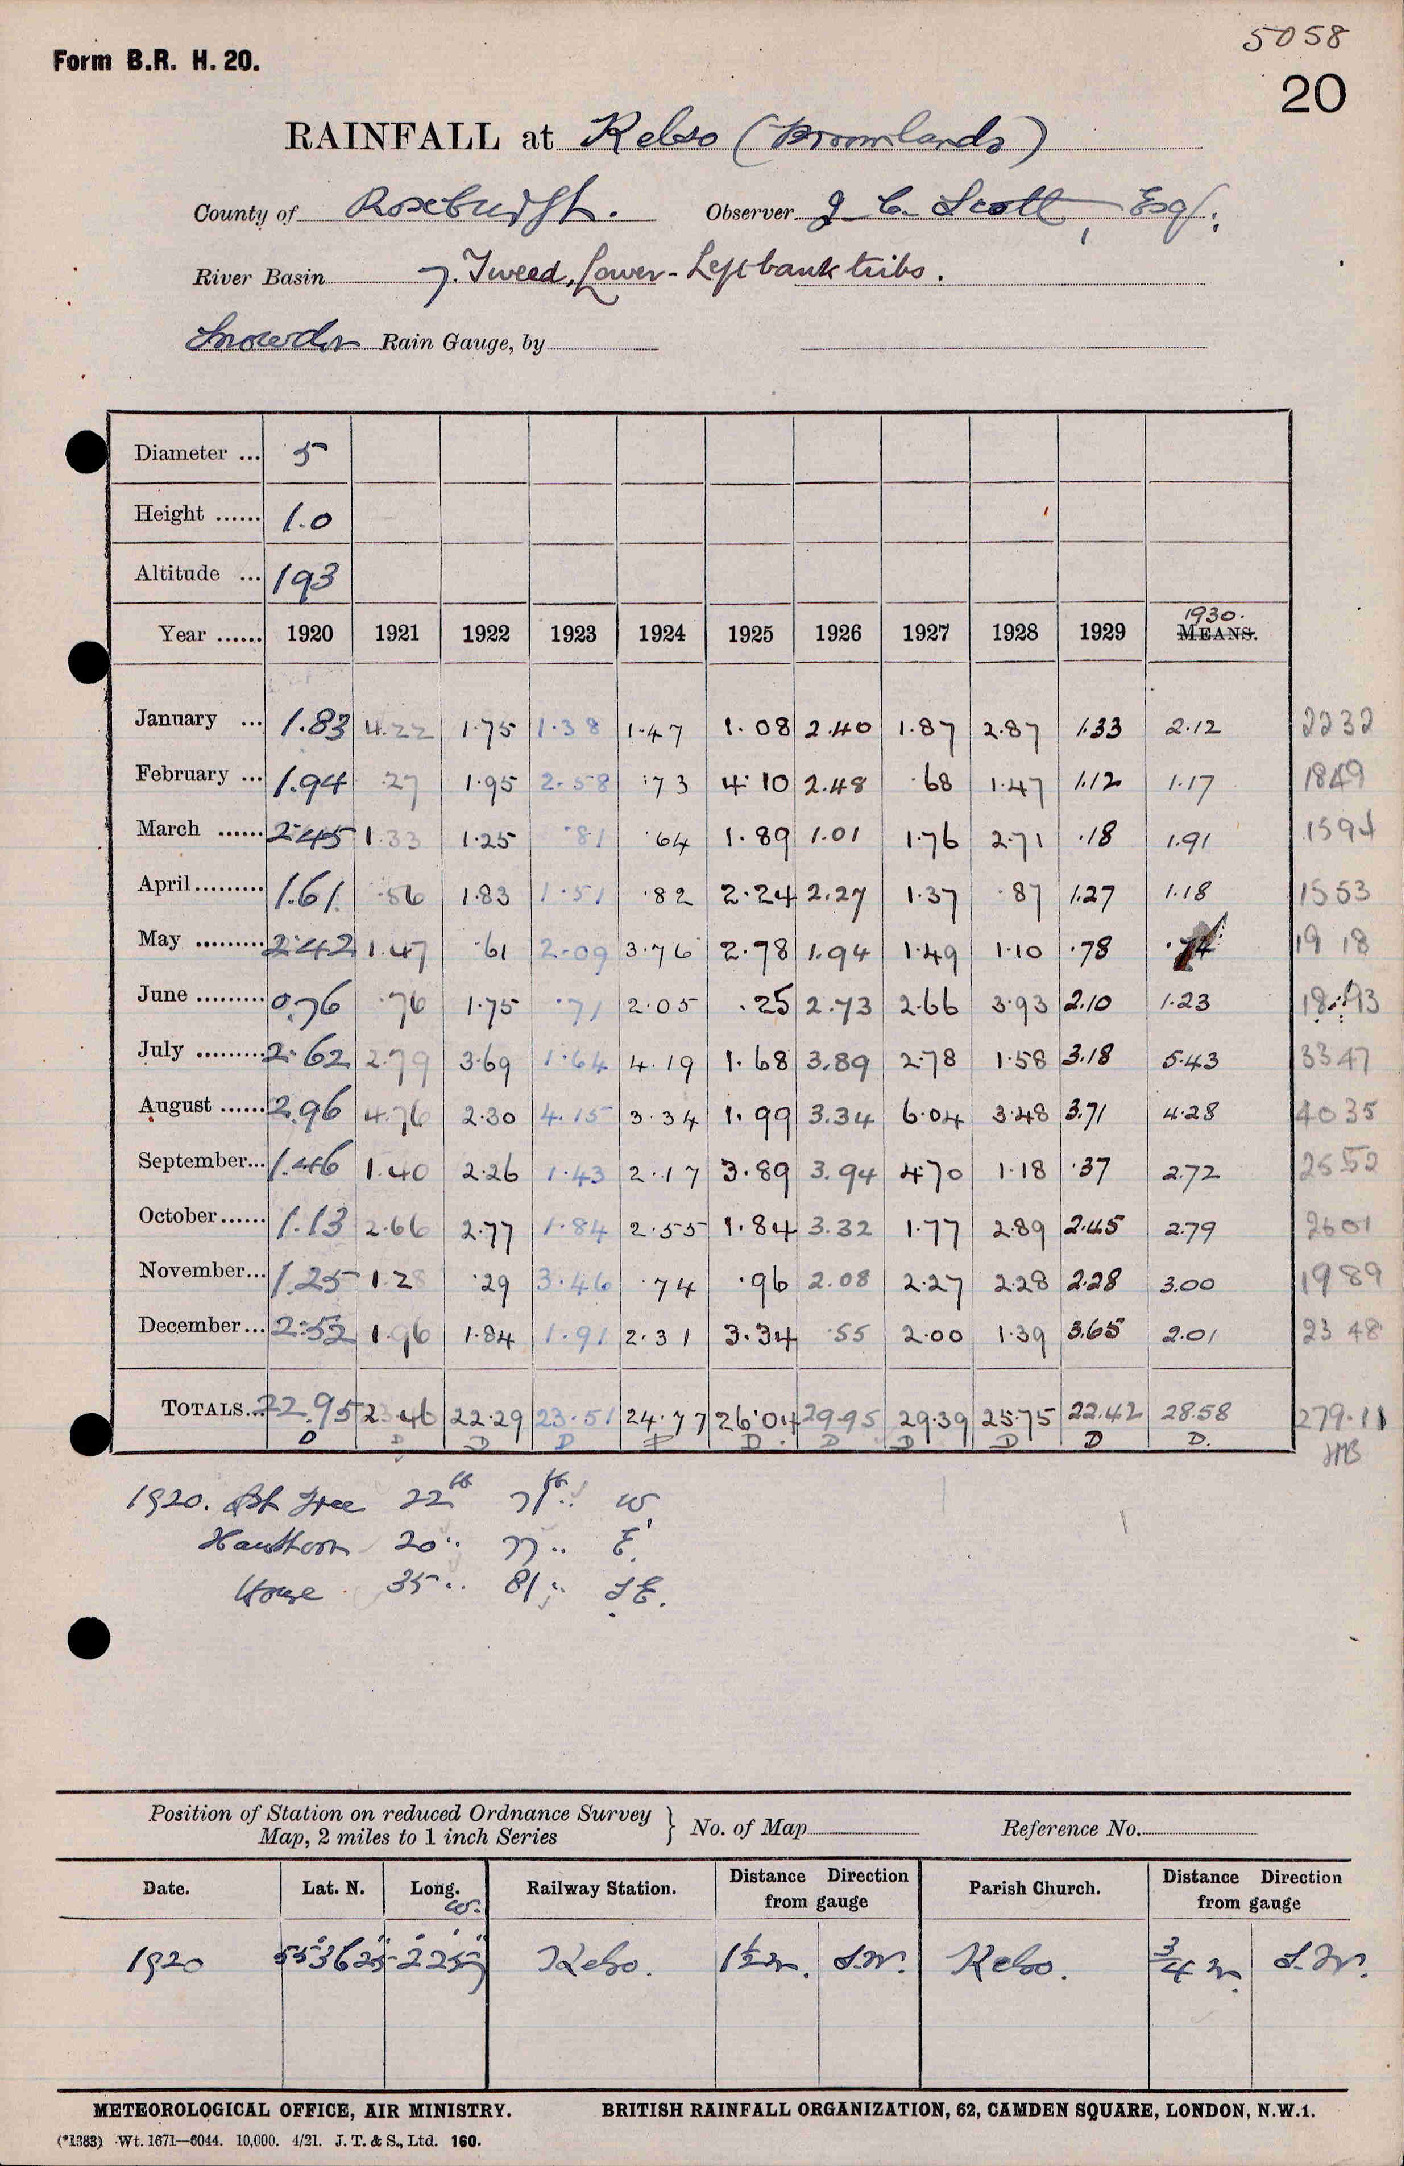 5058
Form B.R. H. 20.
20
RAINFALL at Kelso (Broomlands)
County of Roxburgh. Observer J. C. Scott, Esq.
River Basin 7. Tweed, Lower - Left bank tribs.
Snowdon Rain Gauge, by
Diameter ... 5
Height ...... 1.0
Altitude ... 193
1930.
Year ...... 1920 1921 1922 1923 1924 1925 1926 1927 1928 1929 MEANS.
January ... 1.83 4.22 1.75 1.38 1.47 1.08 2.40 1.87 2.87 1.33 2.12 2232
February ... 1.94 .27 1.95 2.58 .73 4.10 2.48 .68 1.47 1.12 1.17 1849
March ...... 2.45 1.33 1.25 .81 .64 1.89 1.01 1.76 2.71 .18 1.91 1594
April ......... 1.61 .56 1.83 1.51 .82 2.24 2.27 1.37 .87 1.27 1.18 1553
May ......... 2.42 1.47 .61 2.09 3.76 2.78 1.94 1.49 1.10 .78 .74 1918
June ......... 0.76 .76 1.75 .71 2.05 .25 2.73 2.66 3.93 2.10 1.23 1893
July ......... 2.62 2.79 3.69 1.64 4.19 1.68 3.89 2.78 1.58 3.18 5.43 3347
August ...... 2.96 4.76 2.30 4.15 3.34 1.99 3.34 6.04 3.48 3.71 4.28 4035
September... 1.46 1.40 2.26 1.43 2.17 3.89 3.94 4.70 1.18 .37 2.72 2552
October ...... 1.13 2.66 2.77 1.84 2.55 1.84 3.32 1.77 2.89 2.45 2.79 2601
November... 1.25 1.28 .29 3.46 .74 .96 2.08 2.27 2.28 2.28 3.00 1989
December ... 2.52 1.96 1.84 1.91 2.31 3.34 .55 2.00 1.39 3.65 2.01 2348
TOTALS... 22.95 23.46 22.29 23.51 24.77 26.04 29.95 29.39 25.75 22.42 28.58 279.11
D D D D D D D D D D D.
1920. Tree 22ft 71ft W.
Hawthorn 20 " 77 " E.
House 35 " 81 " S E.
Position of Station on reduced Ordnance Survey Map, 2 miles to 1 inch Series } No. of Map Reference No.
Date. Lat. N. Long. W. Railway Station. Distance Direction from gauge Parish Church. Distance Direction from gauge
1920 55° 36' 25" 2° 25' Kelso. 1½ m. S.W. Kelso. ¾ m. S.W.
METEOROLOGICAL OFFICE, AIR MINISTRY. BRITISH RAINFALL ORGANIZATION, 62, CAMDEN SQUARE, LONDON, N.W.1.
(*1383) Wt. 1671—6044. 10,000. 4/21. J. T. & S., Ltd. 160.